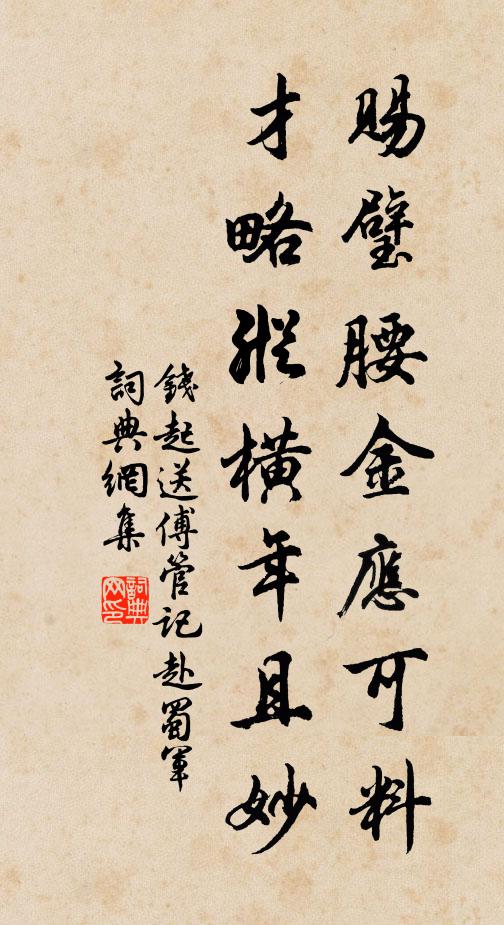 賜璧腰金應可料
才略縱橫年且妙
錢起送傅管記赴蜀軍
詞典網集
詞典網印